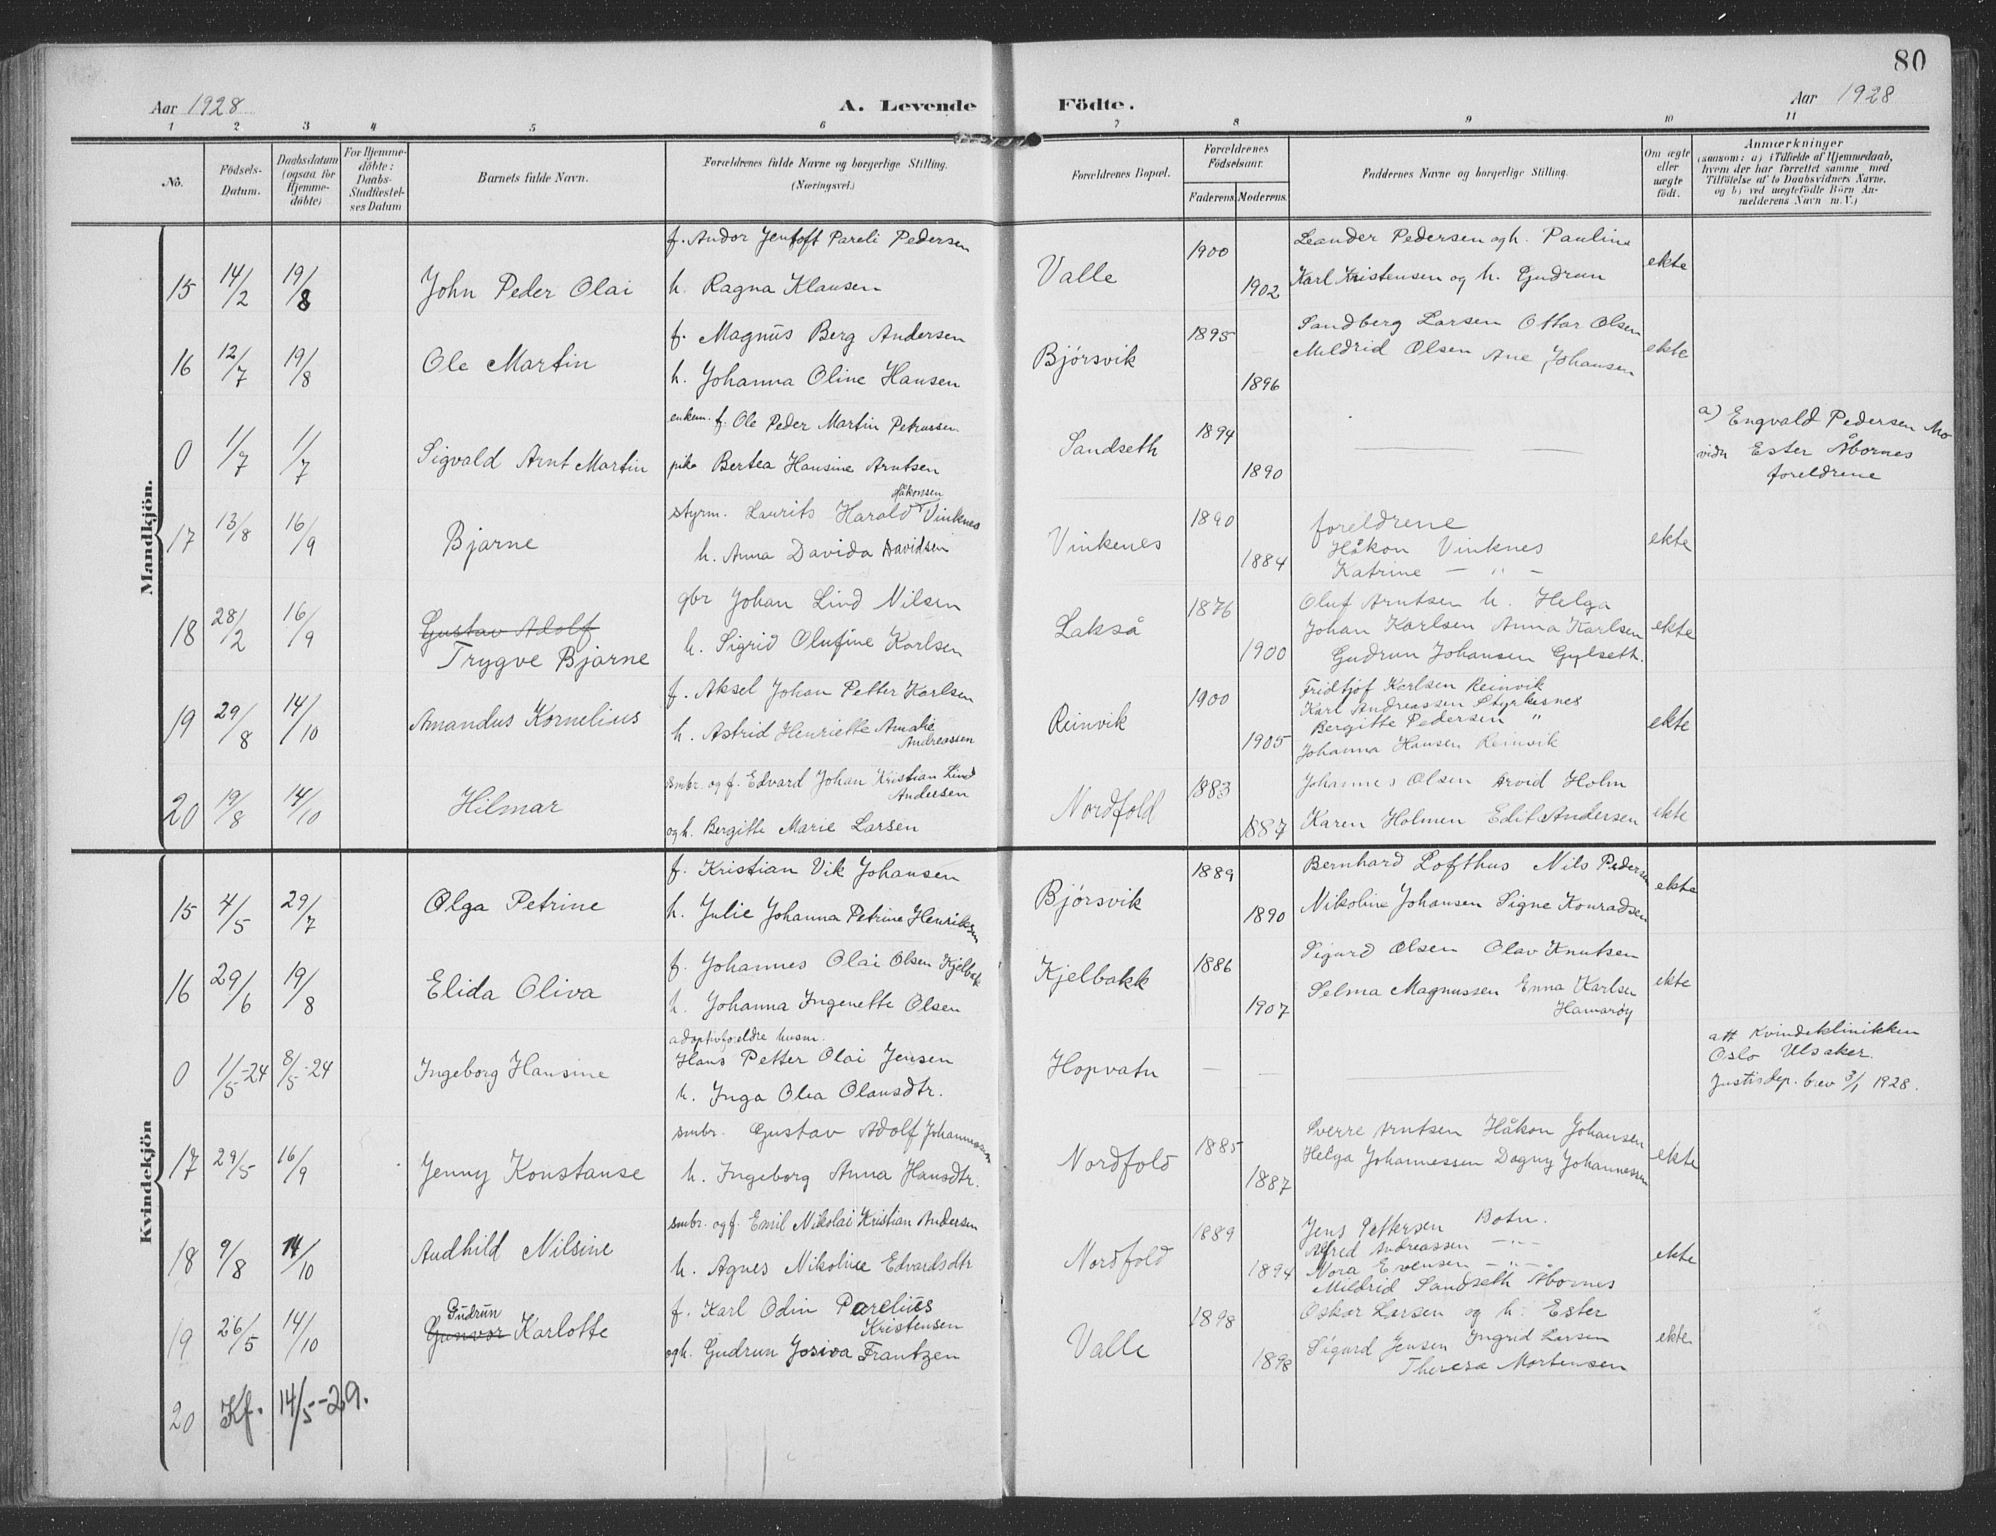 80
Aar 1928 A. Levende Födte. Aar 1928
1 2 3 4 5 6 7 8 9 10 11
No.
Födsels-
Datum.
Daabsdatum
(ogsaa for
Hjemme-
döbte)
For Hjemme-
döbte:
Daabs-
Stadfæstel-
ses Datum
Barnets fulde Navn.
Forældrenes fulde Navne og borgerlige Stilling.
(Næringsvei.)
Forældrenes Bopæl.
Forældrenes
Födselsaar.
Faderens. Moderens.
Faddernes Navne og borgerlige Stilling.
Om ægte
eller
uægte
födt.
Anmærkninger
(saasom: a) i Tilfælde af Hjemmedaab,
hvem der har forrettet samme med
Tilföielse af to Daabsvidners Navne,
og b) ved uægtefödte Börn An-
melderens Navn m. V.)
Mandkjön.
f. Andor Jentoft Pareli Pedersen 1900 Leander Pedersen og h. Paulina
15 14/2 19/8 John Peder Olai h. Ragna Klausen Valle 1902 Karl Kristensen og h. Gudrun ekte
f. Magnus Berg Andersen 1895 Sandberg Larsen Ottar Olsen
16 12/7 19/8 Ole Martin h. Johanna Oline Hansen Bjørsvik 1896 Meldrid Olsen Ane Johansen ekte
enkem. f. Ole Peder Martin Petrussen 1894 a) Engvald Pedersen Mo
0 1/7 1/7 Sigvald Arnt Martin pike Bertea Hansine Arntsen Sandseth 1890 — — vidn Ester Åbornes
foreldrene
Håkonsen
styrm. Laurits Harald Vinknes 1890 foreldrene
17 13/8 16/9 Bjarne h. Anna Davida Davidsen Vinkenes 1884 Håkon Vinknes ekte
Katrine — " —
gbr Johan Lind Nilsen 1876 Oluf Arntsen h. Helga
18 28/2 16/9 Gustav Adolf Johan Karlsen Anna Karlsen ekte
Trygve Bjarne h. Sigrid Olufine Karlsen Lakså 1900 Gudrun Johansen Gylseth.
f. Aksel Johan Petter Karlsen 1900 Fridtjof Karlsen Reinvik
Karl Andreassen Styrkesnes
19 29/8 14/10 Amandus Kornelius h. Astrid Henriette Amalie Reinvik Bergitte Pedersen " ekte
Andreassen 1905 Johanna Hansen Reinvik
smbr. og f. Edvard Johan Kristian Lind 1883 Johannes Olsen Arvid Holm
Andersen
20 19/8 14/10 Hilmar og h. Bergitte Marie Larsen Nordfold 1887 Karen Holmen Edit Andersen ekte
Kvindekjön
f. Kristian Vik Johansen 1889 Bernhard Lofthus Nils Pedersen
15 4/5 29/7 Olga Petrine h. Julie Johanna Petrine Henriksen Bjørsvik 1890 Nikoline Johansen Signe Konradsen ekte
f. Johannes Olai Olsen Kjelbakk 1886 Sigurd Olsen Olav Knutsen
16 29/6 19/8 Elida Oliva h. Johanna Ingenette Olsen Kjelbakk 1907 Selma Magnussen Enna Karlsen ekte
Hamarøy
adoptivforeldre husm.
0 1/5-24 8/5-24 Ingeborg Hansine Hans Petter Olai Jensen Hopvatn — — — att Kvindeklinikken
h. Inga Olea Olausdtr. Oslo Ulsaker.
Justisdep. brev 3/1 1928.
smbr. Gustav Adolf Johannessen 1885 Sverre Arntsen Håkon Johansen
17 29/5 16/9 Jenny Konstanse h. Ingeborg Anna Hansdtr. Nordfold 1887 Helga Johannessen Dagny Johannessen ekte
smbr. og f. Emil Nikolai Kristian Andersen 1889 Jens Pettersen Botn.
Alfred Andreassen — " —
18 9/8 14/10 Audhild Nilsine h. Agnes Nikoline Edvardsdtr Nordfold 1894 Nora Evensen — " — ekte
Mildrid Sandseth Åbornes
Gudrun f. Karl Odin Parelius 1898 Oskar Larsen og h. Ester
Kristensen
19 26/5 14/10 Gunvor Karlotte og h. Gudrun Josiva Frantzen Valle 1898 Sigurd Jensen Ingrid Larsen ekte
Theresa Mortensen
20 Kf. 14/5-29.